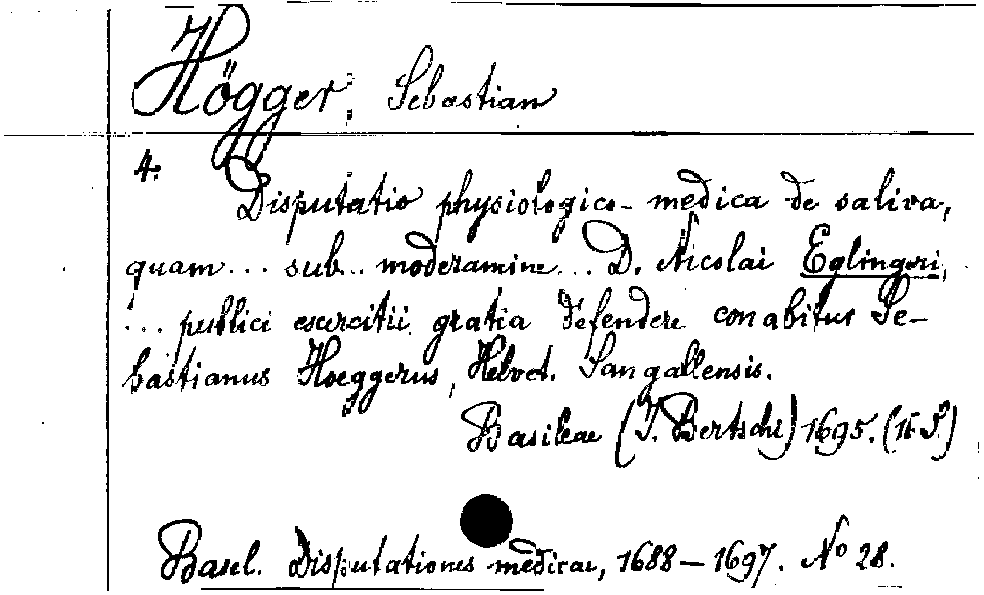 Högger, Sebastian
4.
Disputatio physiologico-medica de saliva,
quam... sub... moderamine... D. Nicolai Eglingeri,
... publici exercitii gratia defendere conabitur Se-
bastianus Hoeggerus, Helvet. Sangallensis.
Basileae (J. Bertschi) 1695. (15 S.)
Basel. Disputationes medicae, 1688–1697. No 28.